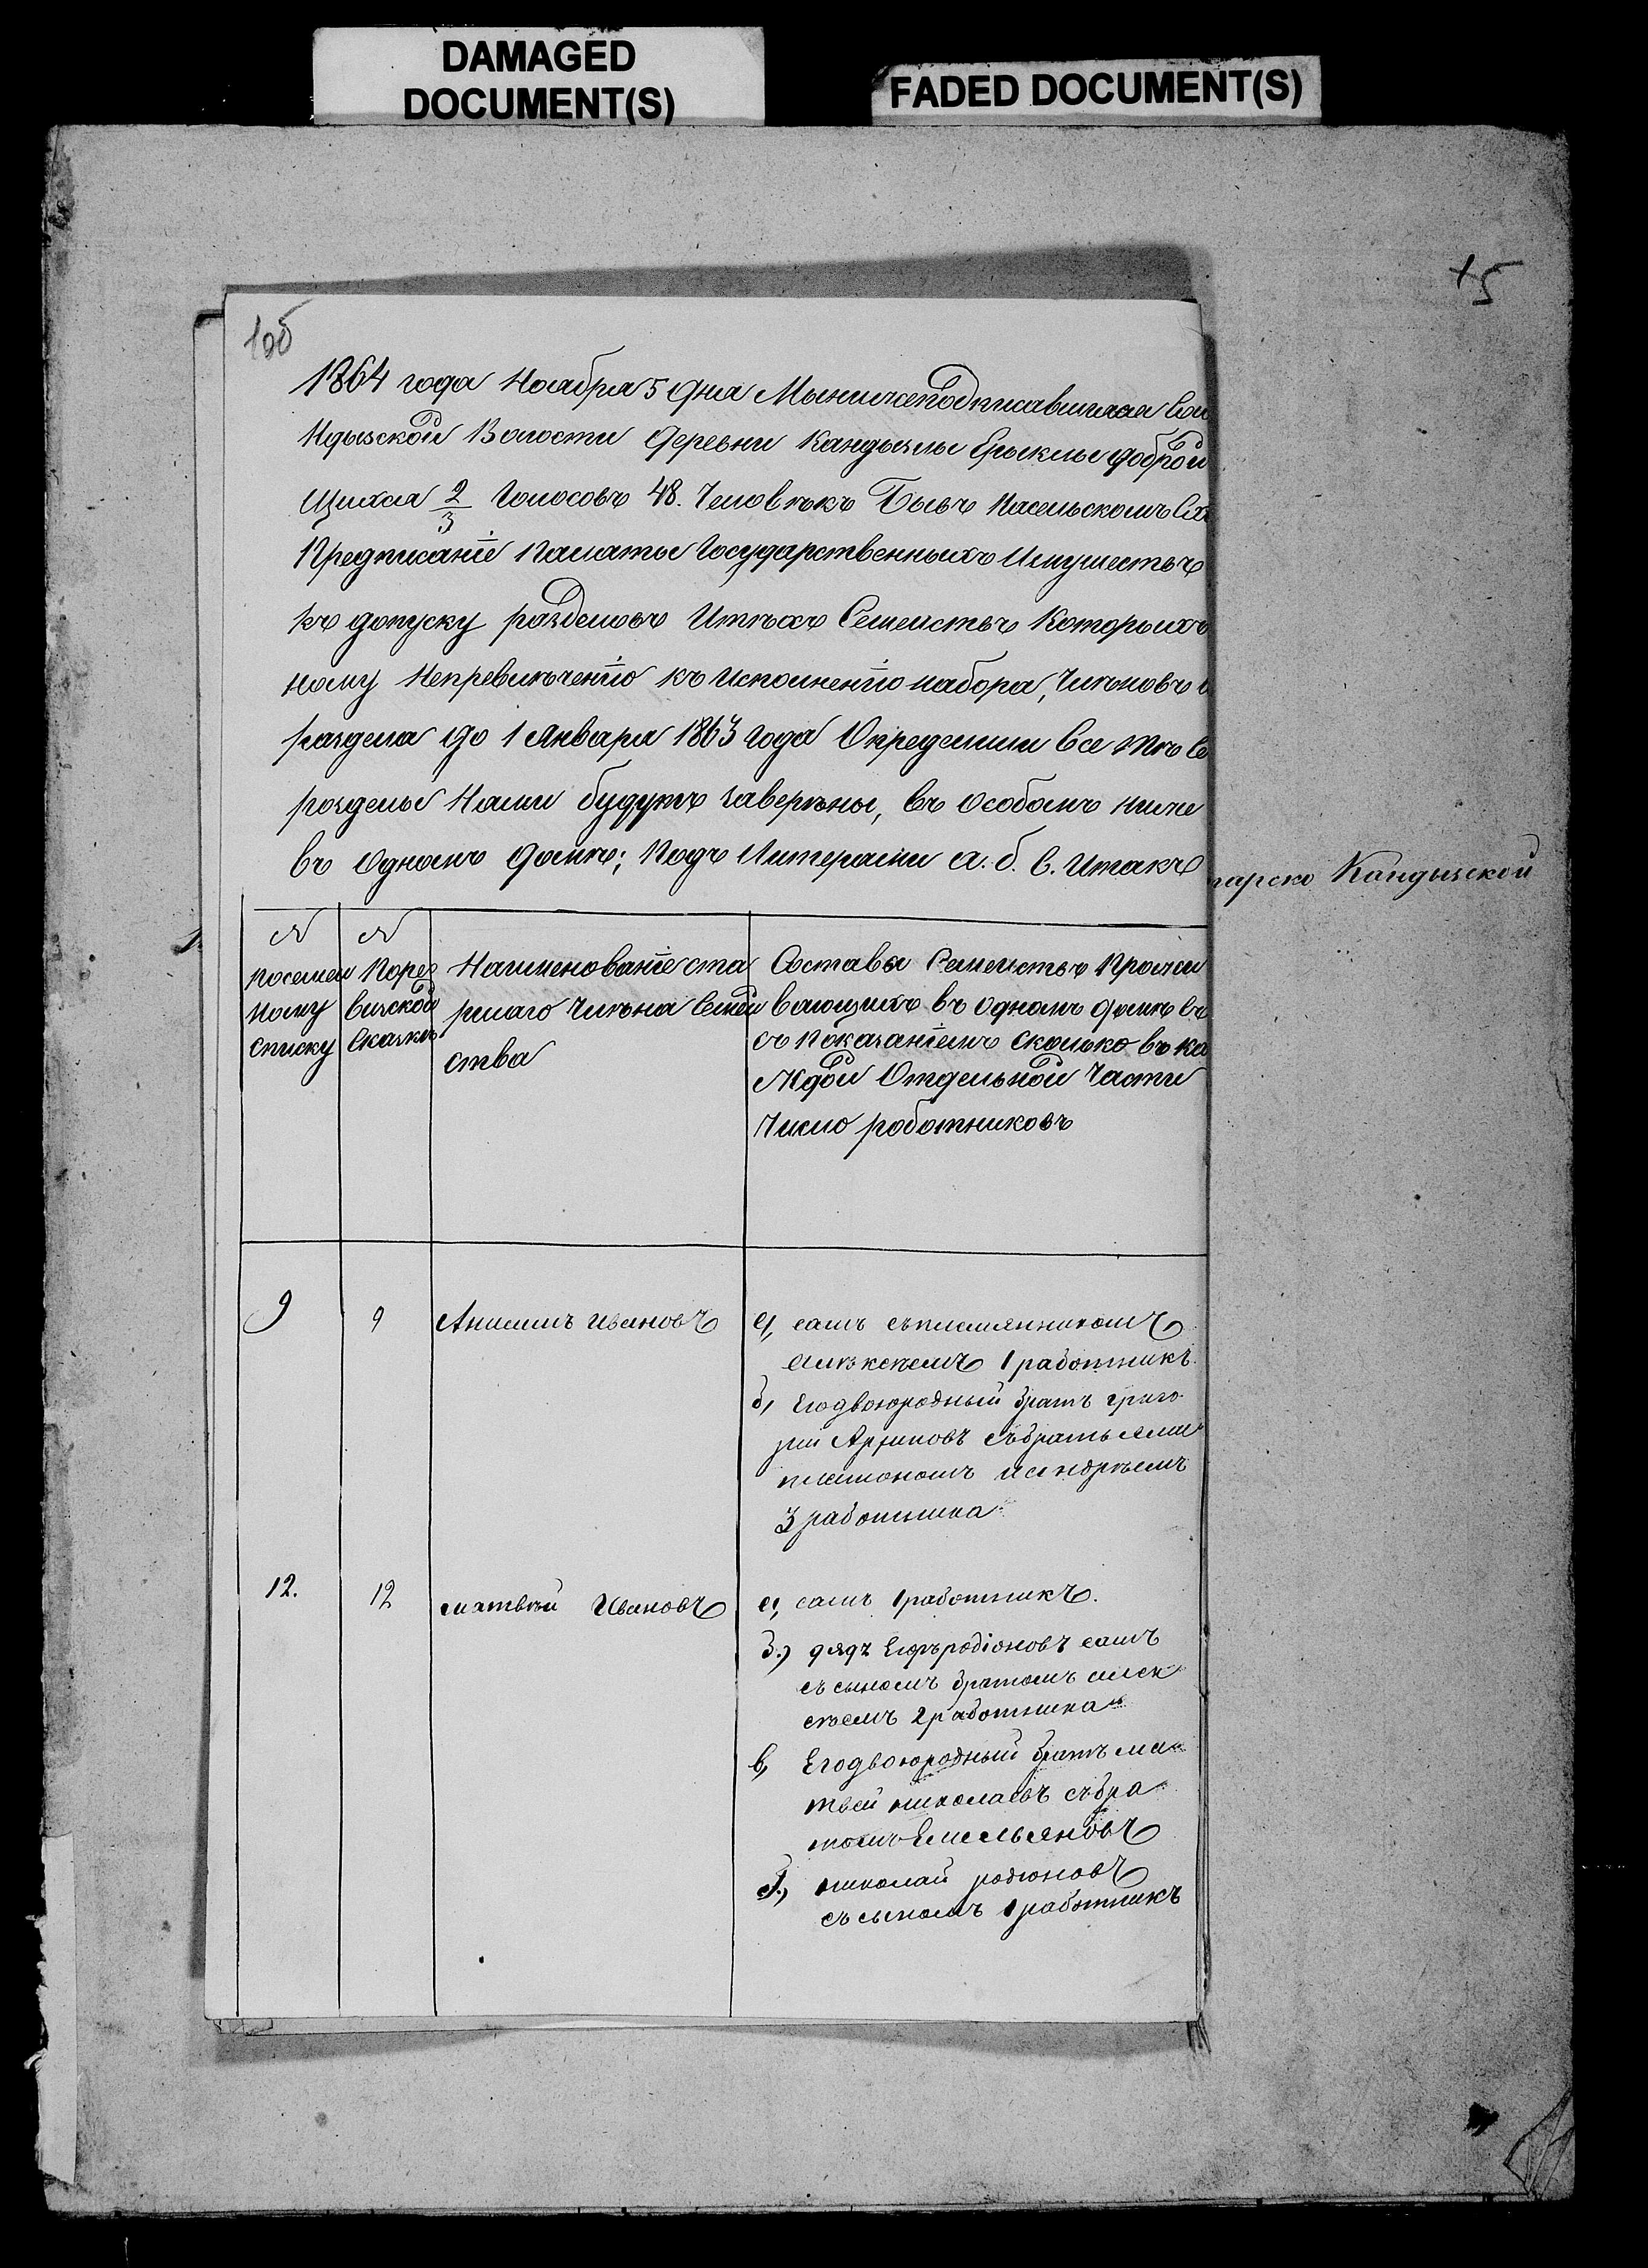 DAMAGED
DOCUMENT(S)
FADED DOCUMENT(S)
5
1864 года Ноабра 5 дна Мынижеподписавшиися
Ндызской Волости деревни Кандызлы Ерыклы доброй
щихся 2/3 Голосовъ 48. Человѣкъ Бывъ Насельскомъ
Предписаніе Палаты Государственныхъ Имуществъ
къ допуску разделовъ Итѣхъ Семействъ Которыхъ
ному къ Исполненію набора, Членовъ
раздела до 1 Января 1863 года Определили все тѣ
разделы Нами будутъ заверѣны, въ Особомъ ниже
въ Одномъ домѣ; Подъ Литерами а. б. в. Итакъ
гарско Кандызской
№
посемей
ному
списку
№
Порев
визской
Скаскѣ
Наименованіе ста
ршаго Члѣна Семей
ства
Составы Семействъ Прожи
вающихъ въ Одномъ домѣ
съ показаніемъ сколько въ ка
Ждой Отдельной Части
Число роботниковъ
9
9
Анисимъ Ивановъ
а, самъ съплемянникомъ
алѣксѣемъ 1 работникъ
б, Егодвоюродный братъ григо
рій събратьями
платономъ иандрѣемъ
3 работника
12.
12
матвѣй Ивановъ
а, самъ 1 работникъ.
б.) дядя самъ
съсыномъ братомъ алек
сѣемъ 2 работника
в, Егодвоюродный братъ ма
твей николаевъ събра
томъ Емельяновъ
николай родіоновъ
съсыномъ 1 работникъ